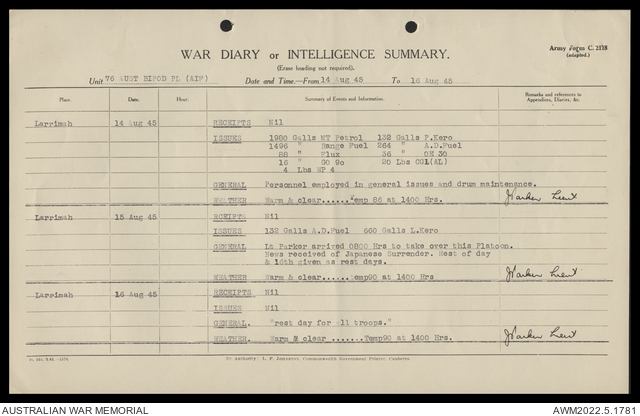 WAR DIARY or INTELLIGENCE SUMMARY.
Army Form C. 2118
(adapted.)
(Erase heading not required).
Unit 76 AUST BIPOD PL (AIF) Date and Time.—From 14 Aug 45 To 16 Aug 45
Place. Date. Hour. Summary of Events and Information. Remarks and references to
Appendices, Diaries, &c.
Larrimah 14 Aug 45 RECEIPTS Nil
ISSUES 1980 Galls MT Petrol 132 Galls P.Kero
1496 " Range Fuel 264 " A.D.Fuel
88 " Flux 36 " OE 30
16 " GO 90 20 Lbs CG1(AL)
4 Lbs WP 4
GENERAL Personnel employed in general issues and drum maintenance.
WEATHER Warm & clear......Temp 86 at 1400 Hrs. JParker Lieut
Larrimah 15 Aug 45 RCEIPTS Nil
ISSUES 132 Galls A.D.Fuel 660 Galls L.Kero
GENERAL Lt Parker arrived 0800 Hrs to take over this Platoon.
News received of Japanese Surrender. Rest of day
& 16th given as rest days.
WEATHER Warm & clear......Temp90 at 1400 Hrs JParker Lieut
Larrimah 16 Aug 45 RECEIPTS Nil
ISSUES Nil
GENERAL. "rest day for all troops."
WEATHER. Warm & clear .......Temp90 at 1400 Hrs. JParker Lieut
By Authority: L. F. Johnston, Commonwealth Government Printer, Canberra
AUSTRALIAN WAR MEMORIAL
AWM2022.5.1781